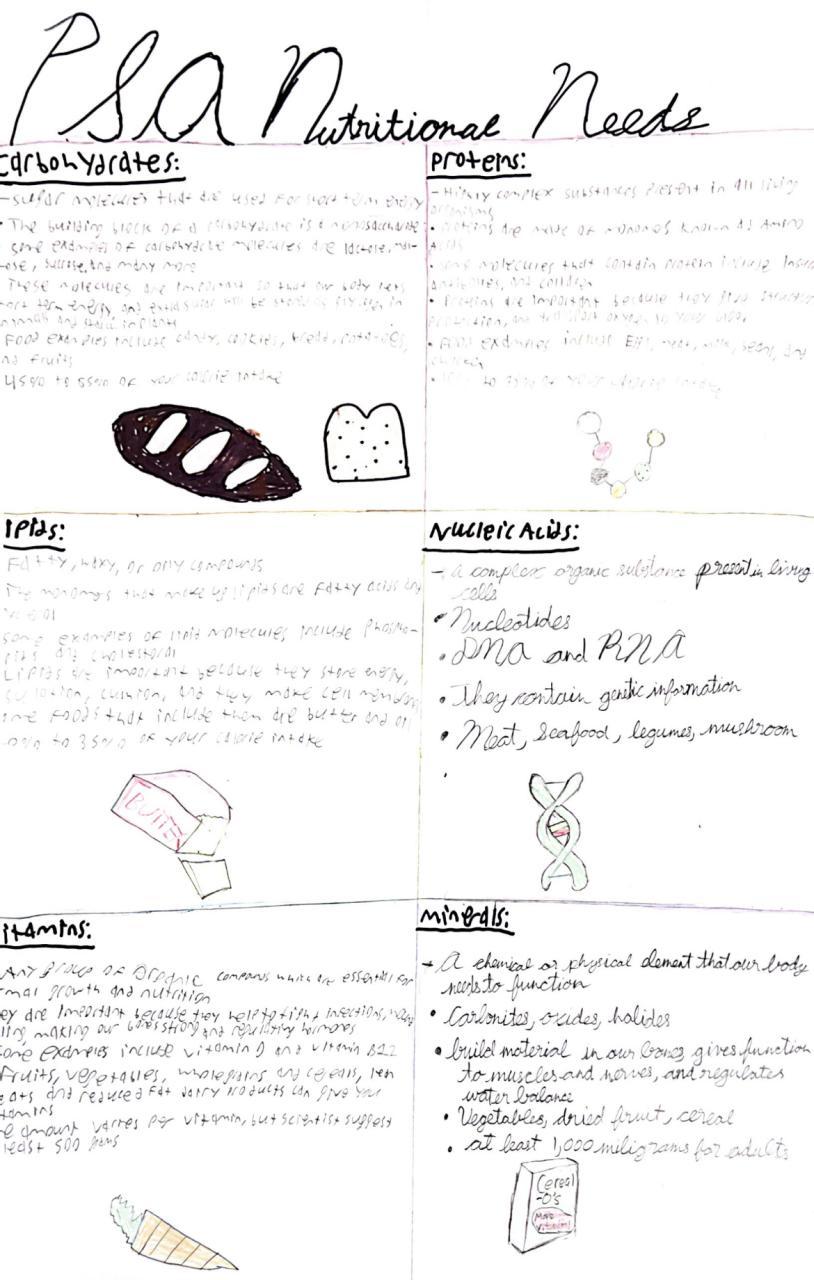 PSA Nutritional Needs
Carbohydrates:
- sugar molecules that are used for short term energy
• The building block of a carbohydrate is a monosaccharide
some examples of carbohydrate molecules are lactose, mal-
ose, sucrose, and many more
These molecules are important so that our body gets
short term energy, and extra sugar will be stored as
animals and in plants
Food examples include candy, cookies, bread, potatoes,
and fruits
45% to 55% of your calorie intake
Proteins:
- Highly complex substances present in all living
organisms
• Proteins are made of known as Amino
Acids
• some molecules that contain protein include
antibodies, and
• Proteins are important because they give structure
protection, and oxygen to your
• Food examples include meat, milk, beans, and
chicken
• to 35% of your calorie intake
ipids:
Fatty, waxy, or oily compounds
The that make up lipids are fatty acids and
some examples of lipid molecules include phospho-
and
Lipids are important because they store energy,
cushion, and they make cell
some foods that include them are butter and oil
to 35% of your calorie intake
BUTTE
Nucleic Acids:
- a complex organic substance present in living
cells
• Nucleotides
• DNA and RNA
• They contain genetic information
• Meat, seafood, legumes, mushroom
itamins:
Any group of organic which are essential for
growth and nutrition
ey are important because they help to fight infections,
ling, making our bones strong and regulating hormones
some examples include vitamin D and vitamin B12
Fruits, vegetables, and cereals,
eats and reduced fat dairy products can give you
tamins
e amount varies per vitamin, but scientist suggest
least 500
minerals:
- A chemical or physical element that our body
needs to function
• Carbonites, oxides, halides
• build material in our bones, gives function
to muscles and nerves, and regulates
water balance
• Vegetables, dried fruit, cereal
• at least 1,000 miligrams for adults
Cereal
-O's